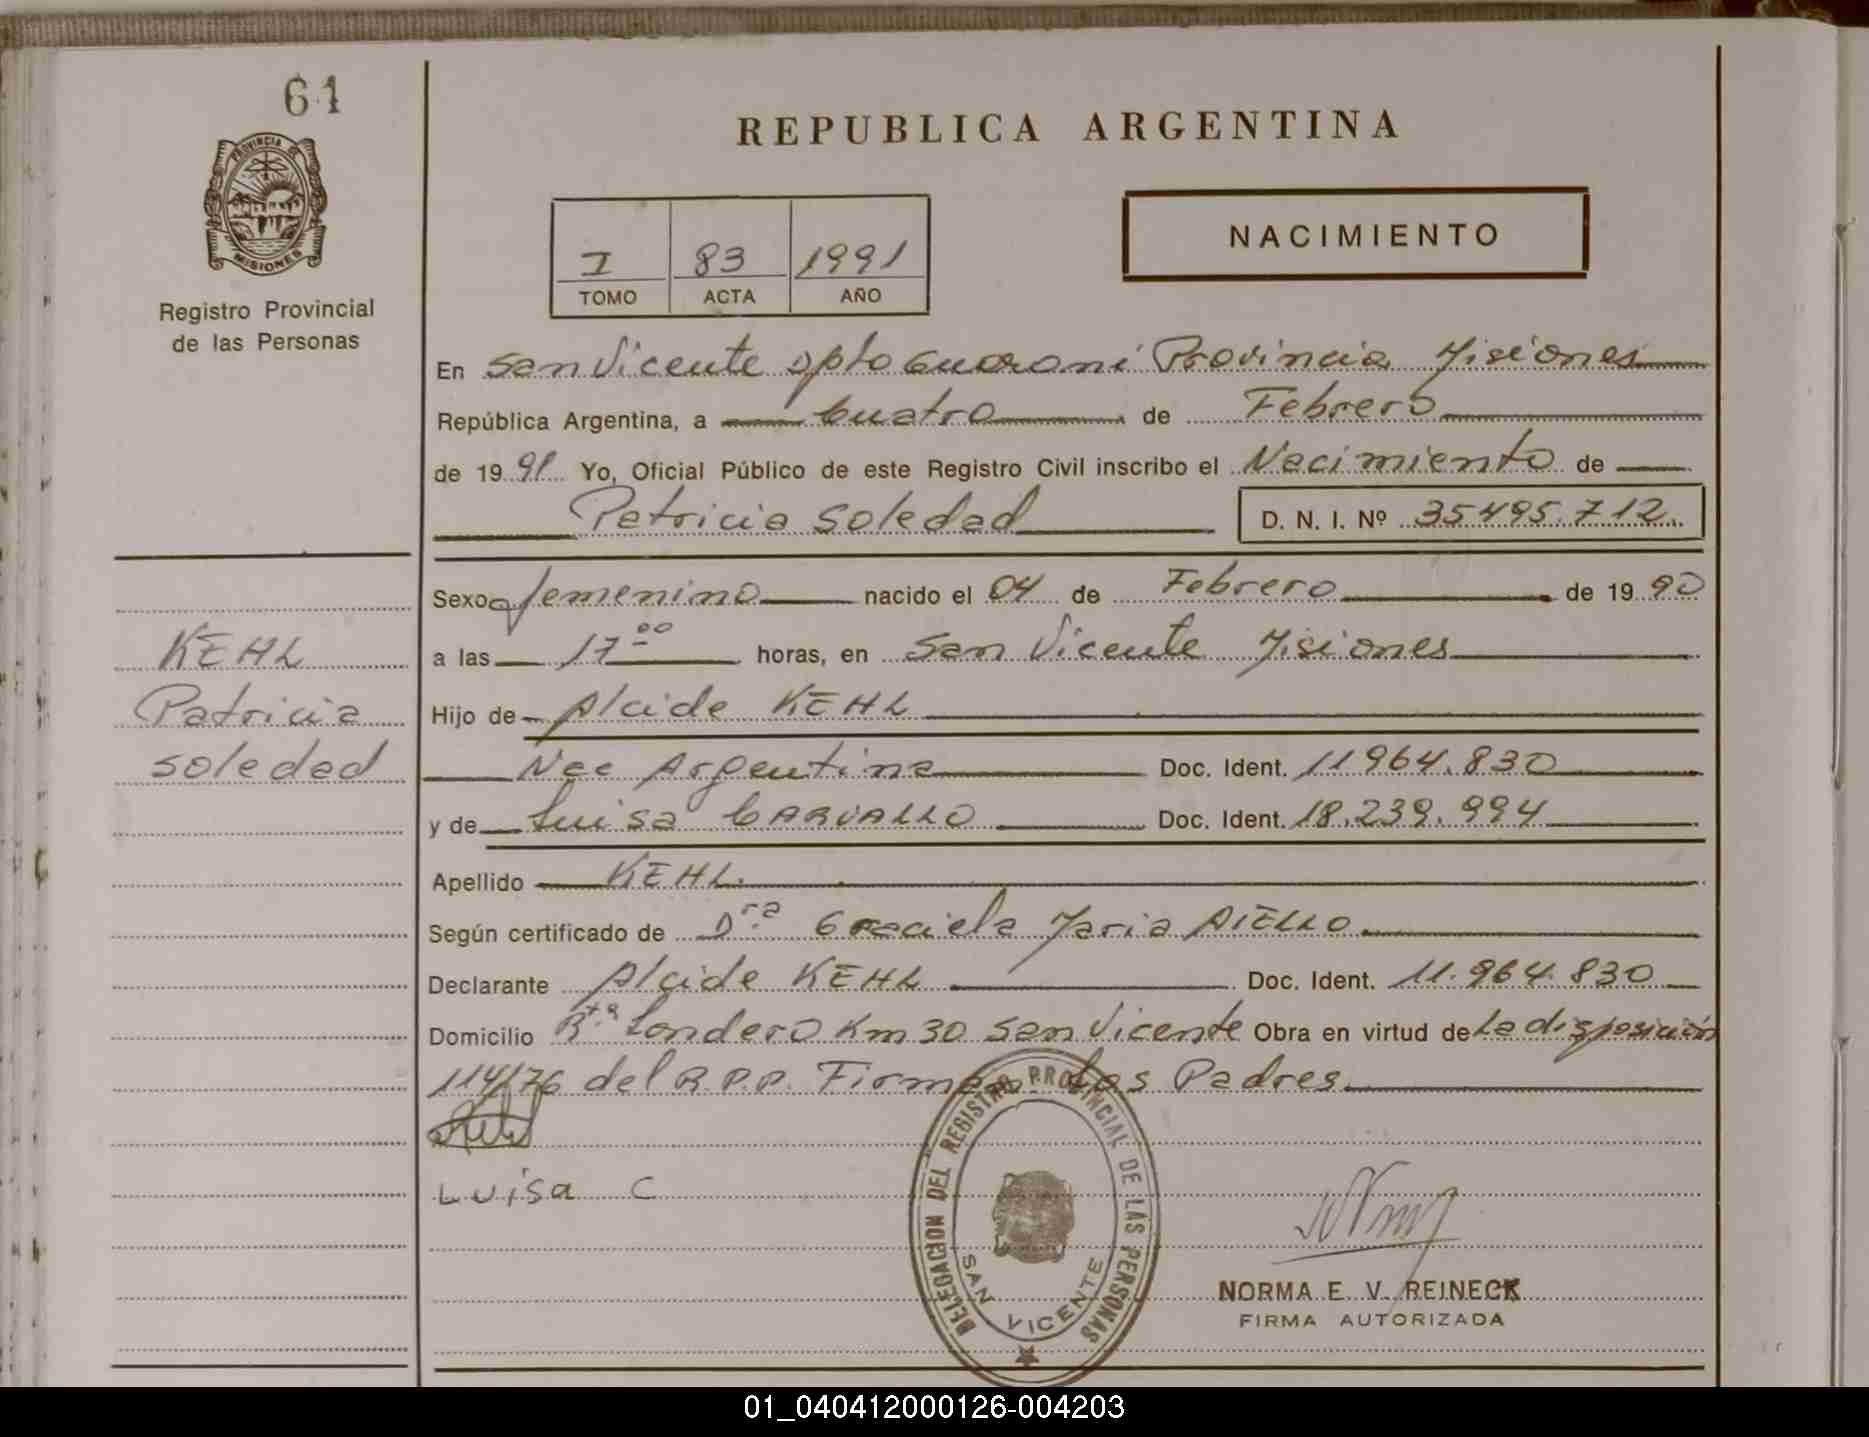 61
PROVINCIA DE
MISIONES
Registro Provincial
de las Personas
REPUBLICA ARGENTINA
I 83 1991
TOMO ACTA AÑO
NACIMIENTO
En San Vicente Dpto Guarani Provincia Misiones
República Argentina, a Cuatro de Febrero
de 1991 Yo, Oficial Público de este Registro Civil inscribo el Nacimiento de
Patricia Soledad D. N. I. Nº 35495.712.
Sexo femenino nacido el 04 de Febrero de 1990
a las 17 00 horas, en San Vicente Misiones
Hijo de Alcide KEHL
Nac Argentina Doc. Ident. 11964.830
y de Luisa CARVALLO Doc. Ident. 18.239.994
Apellido KEHL.
Según certificado de Dra Graciela Maria AIELLO
Declarante Alcide KEHL Doc. Ident. 11.964.830
Domicilio Rta Londero Km 30 San Vicente Obra en virtud de La disposición
114/76 del R.P.P. Firman Los Padres
Luisa C
KEHL
Patricia
Soledad
DELEGACION DEL REGISTRO PROVINCIAL DE LAS PERSONAS
SAN VICENTE
NORMA E. V. REINECK
FIRMA AUTORIZADA
01_040412000126-004203